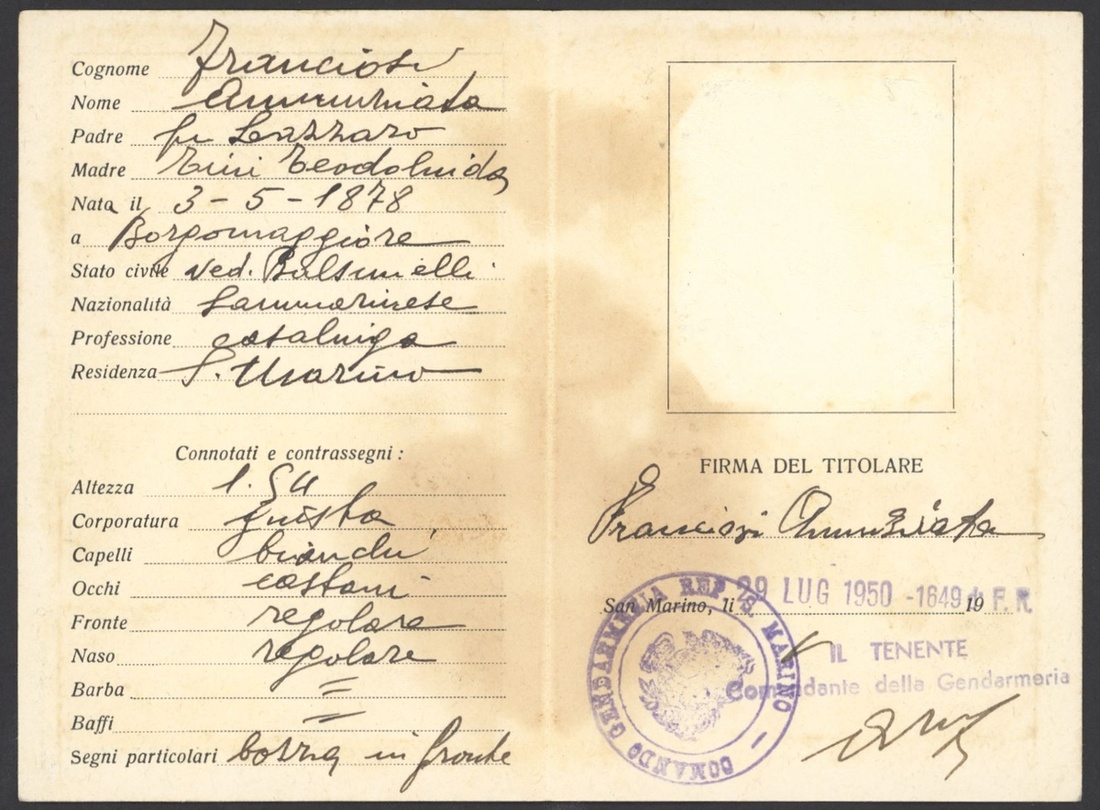 Cognome Franciosi
Nome Annunziata
Padre fu Lazzaro
Madre Tini Teodolinda
Nata il 3-5-1878
a Borgomaggiore
Stato civile ved. Balsimelli
Nazionalità Sammarinese
Professione casalinga
Residenza S. Marino
Connotati e contrassegni :
Altezza 1.54
Corporatura giusta
Capelli bianchi
Occhi castani
Fronte regolare
Naso regolare
Barba =
Baffi =
Segni particolari bozza in fronte
FIRMA DEL TITOLARE
Franciosi Annunziata
San Marino, lì 29 LUG 1950 -1649 d. F. R. 19
COMANDO GENDARMERIA REP. S. MARINO
IL TENENTE
Comandante della Gendarmeria